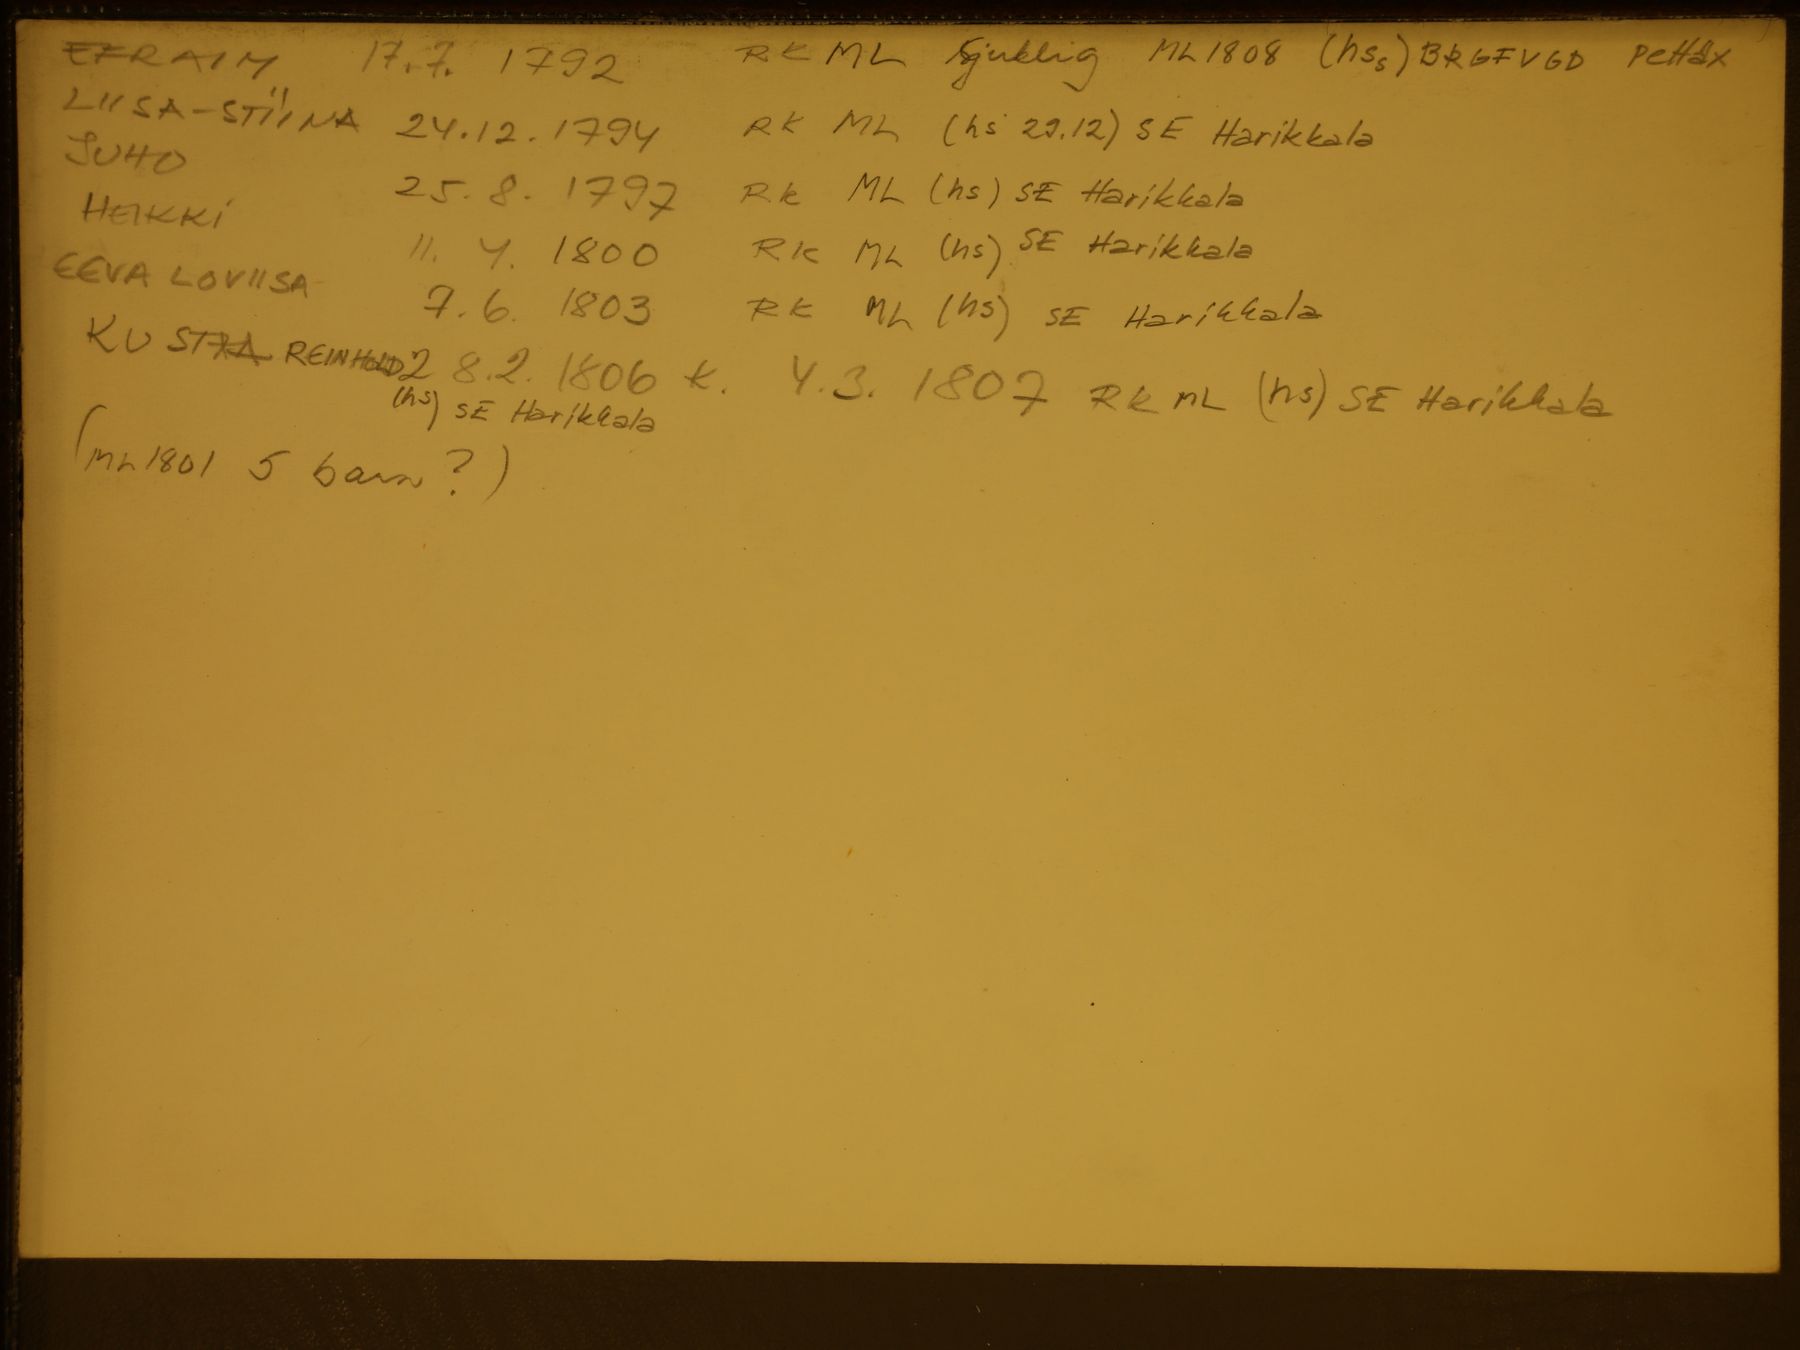 EFRAIM 17.7. 1792 RK ML Sjuklig ML 1808 (hss) BRGFVGD Pettäx
LIISA-STIINA 24.12.1794 RK ML (hs 29.12) SE Harikkala
JUHO 25.8.1797 RK ML (hs) SE Harikkala
HEIKKI 11.4.1800 RK ML (hs) SE Harikkala
EEVA LOVIISA 7.6.1803 RK ML (hs) SE Harikkala
KUSTAA REINHOLD 28.2.1806 k. 4.3.1807 RK ML (hs) SE Harikkala
(hs) SE Harikkala
(ML 1801 5 barn?)